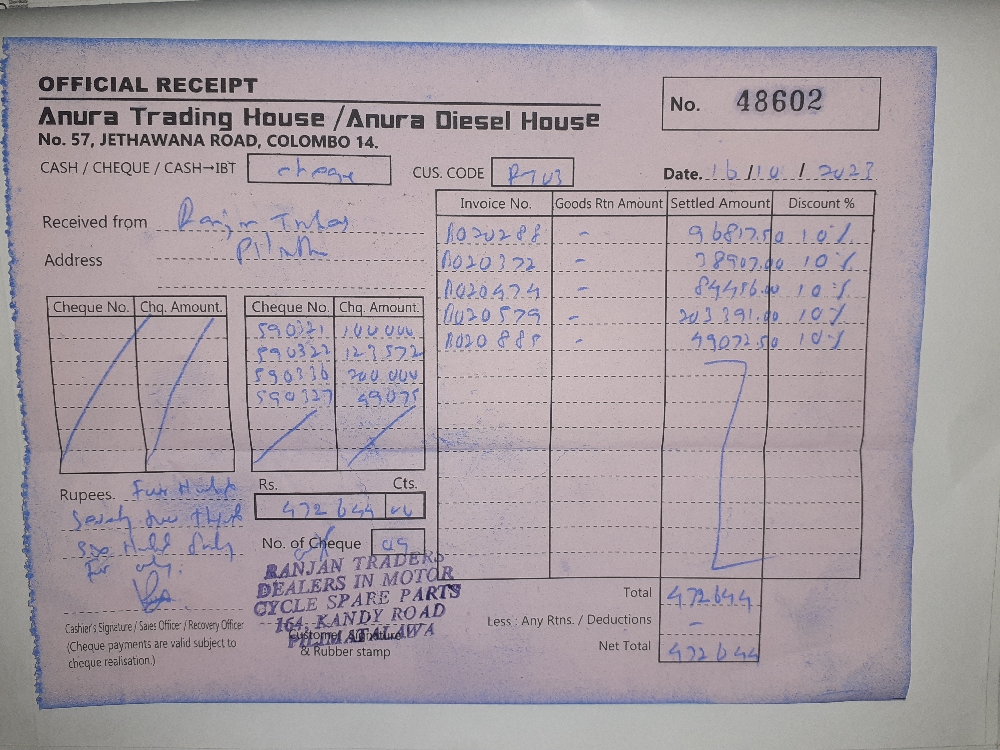 OFFICIAL RECEIPT
Anura Trading House /Anura Diesel House
No. 57, JETHAWANA ROAD, COLOMBO 14.
No. 48602
CASH / CHEQUE / CASH→IBT cheque
CUS. CODE
Date. 16 / 10 / 2023
Received from Ranjan
Address
Invoice No. Goods Rtn Amount Settled Amount Discount %
A020288 - 96817.50 10%
A020372 - 38907.00 10%
A020474 - 84456.00 10%
A020579 - 203391.00 10%
A020885 - 49072.50 10%
Cheque No. Chq. Amount. Cheque No. Chq. Amount.
590321 100.000
590322 123572
590336 200.000
590327 49075
Rupees.
Rs. Cts.
472644
No. of Cheque
RANJAN TRADERS
DEALERS IN MOTOR
CYCLE SPARE PARTS
164, KANDY ROAD
PILIMATALAWA
Cashier's Signature / Sales Officer / Recovery Officer
(Cheque payments are valid subject to
cheque realisation.)
Customer Signature
& Rubber stamp
Total 472644
Less : Any Rtns. / Deductions -
Net Total 472644